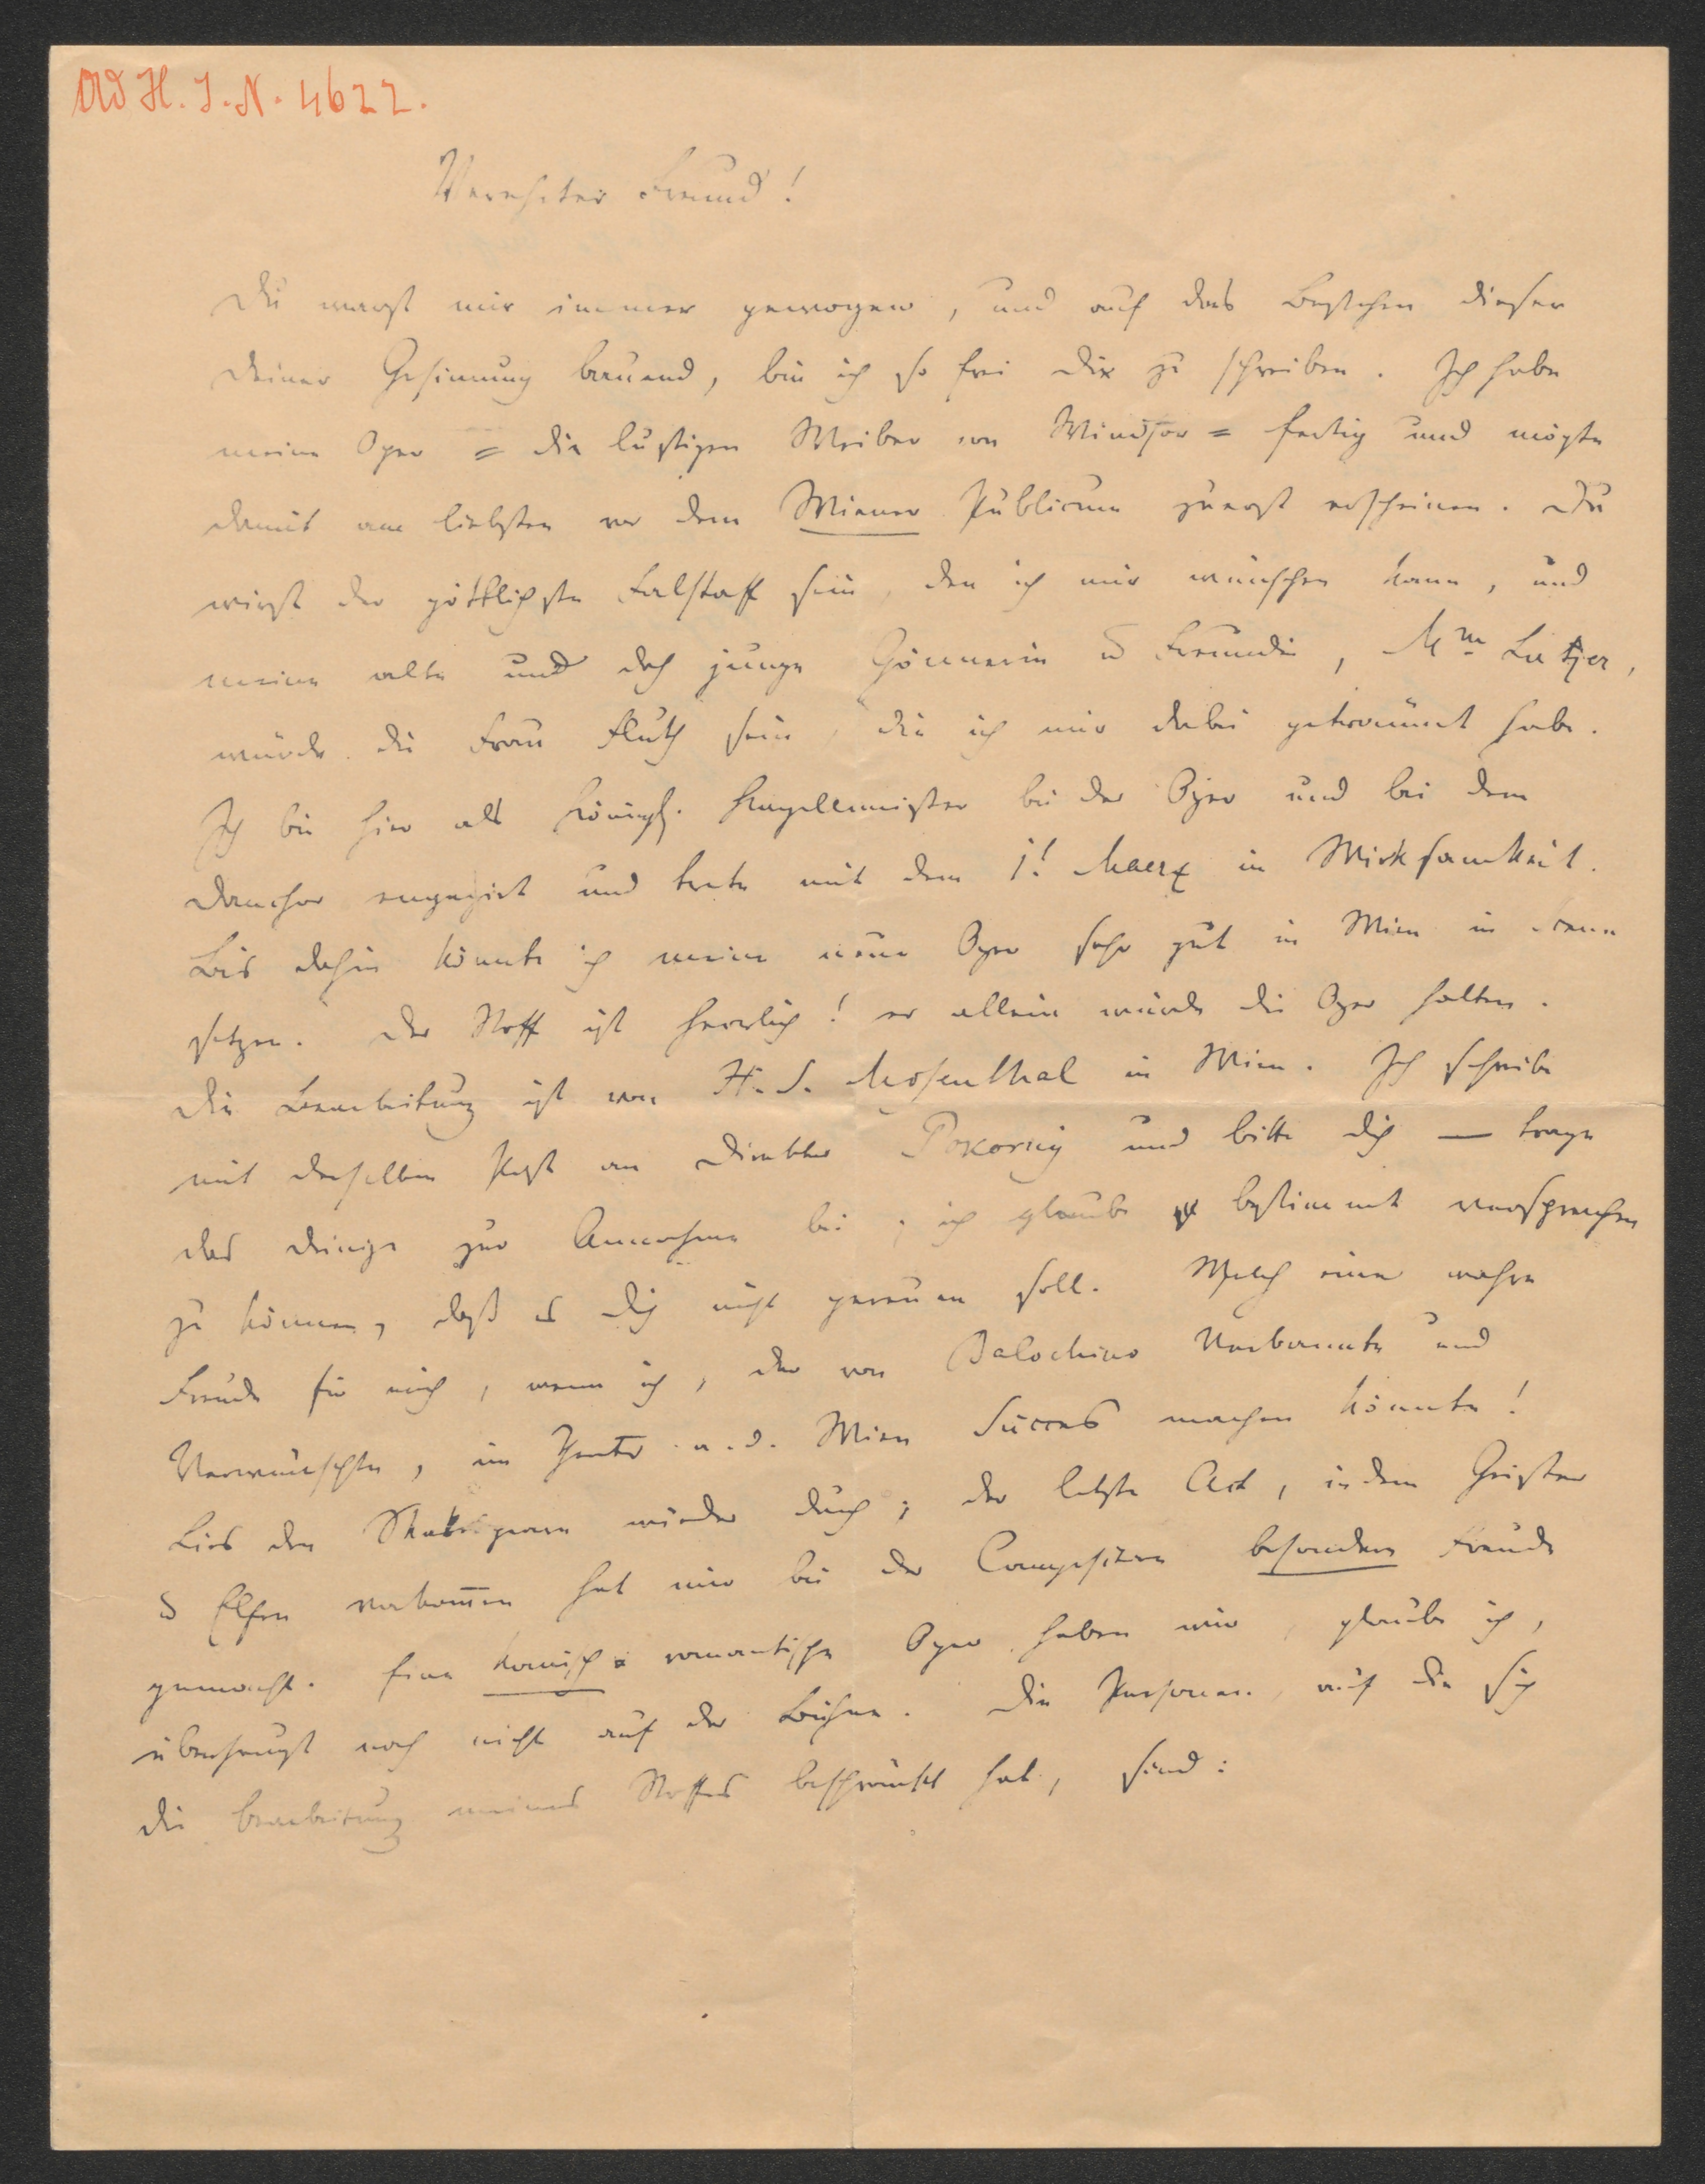 Ad H. I. N. 4622.
Verehrter Freund!
Du warst mir immer gewogen, und auf das Bestehen dieser
Deiner Gesinnung bauend, bin ich so frei Dir zu schreiben. Ich habe
meine Oper = die lustigen Weiber von Windsor = fertig und mögte
damit am liebsten vor dem Wiener Publicum zuerst erscheinen. Du
wirst der göttlichste Falstaff sein, den ich mir wünschen kann, und
meine alte und doch junge Gönnerin u Freundin, Mm Lutzer,
würde die Frau Fluth sein, die ich mir dabei geträumt habe.
Ich bin hier als königl. Kapellmeister bei der Oper und bei dem
Domchor engagirt und trete mit dem 1t Maerz in Wirksamkeit.
Bis dahin könnte ich meine neue Oper sehr gut in Wien in Scene
setzen. Der Stoff ist herrlich! er allein würde die Oper halten.
Die Bearbeitung ist von H. S. Mosenthal in Wien. Ich schreibe
mit derselben Post an Direktor Pokorny und bitte Dich — trage
das Deinige zur Annahme bei; ich glaube bestimmt versprechen
zu können, daß es Dich nicht gereuen soll. Welch eine wahre
Freude für mich, wenn ich, der von Balochino Verbannte und
Verwünschte, im Theater a. d. Wien Succes machen könnte!
Lies den Shakespeare wieder durch; der letzte Act, in dem Geister
u Elfen vorkom̅en hat mir bei der Composition besondere Freude
gemacht. Eine komisch-romantische Oper haben wir, glaube ich,
überhaupt noch nicht auf der Bühne. Die Personen, auf die sich
die Bearbeitung meines Stoffes beschränkt hat, sind: